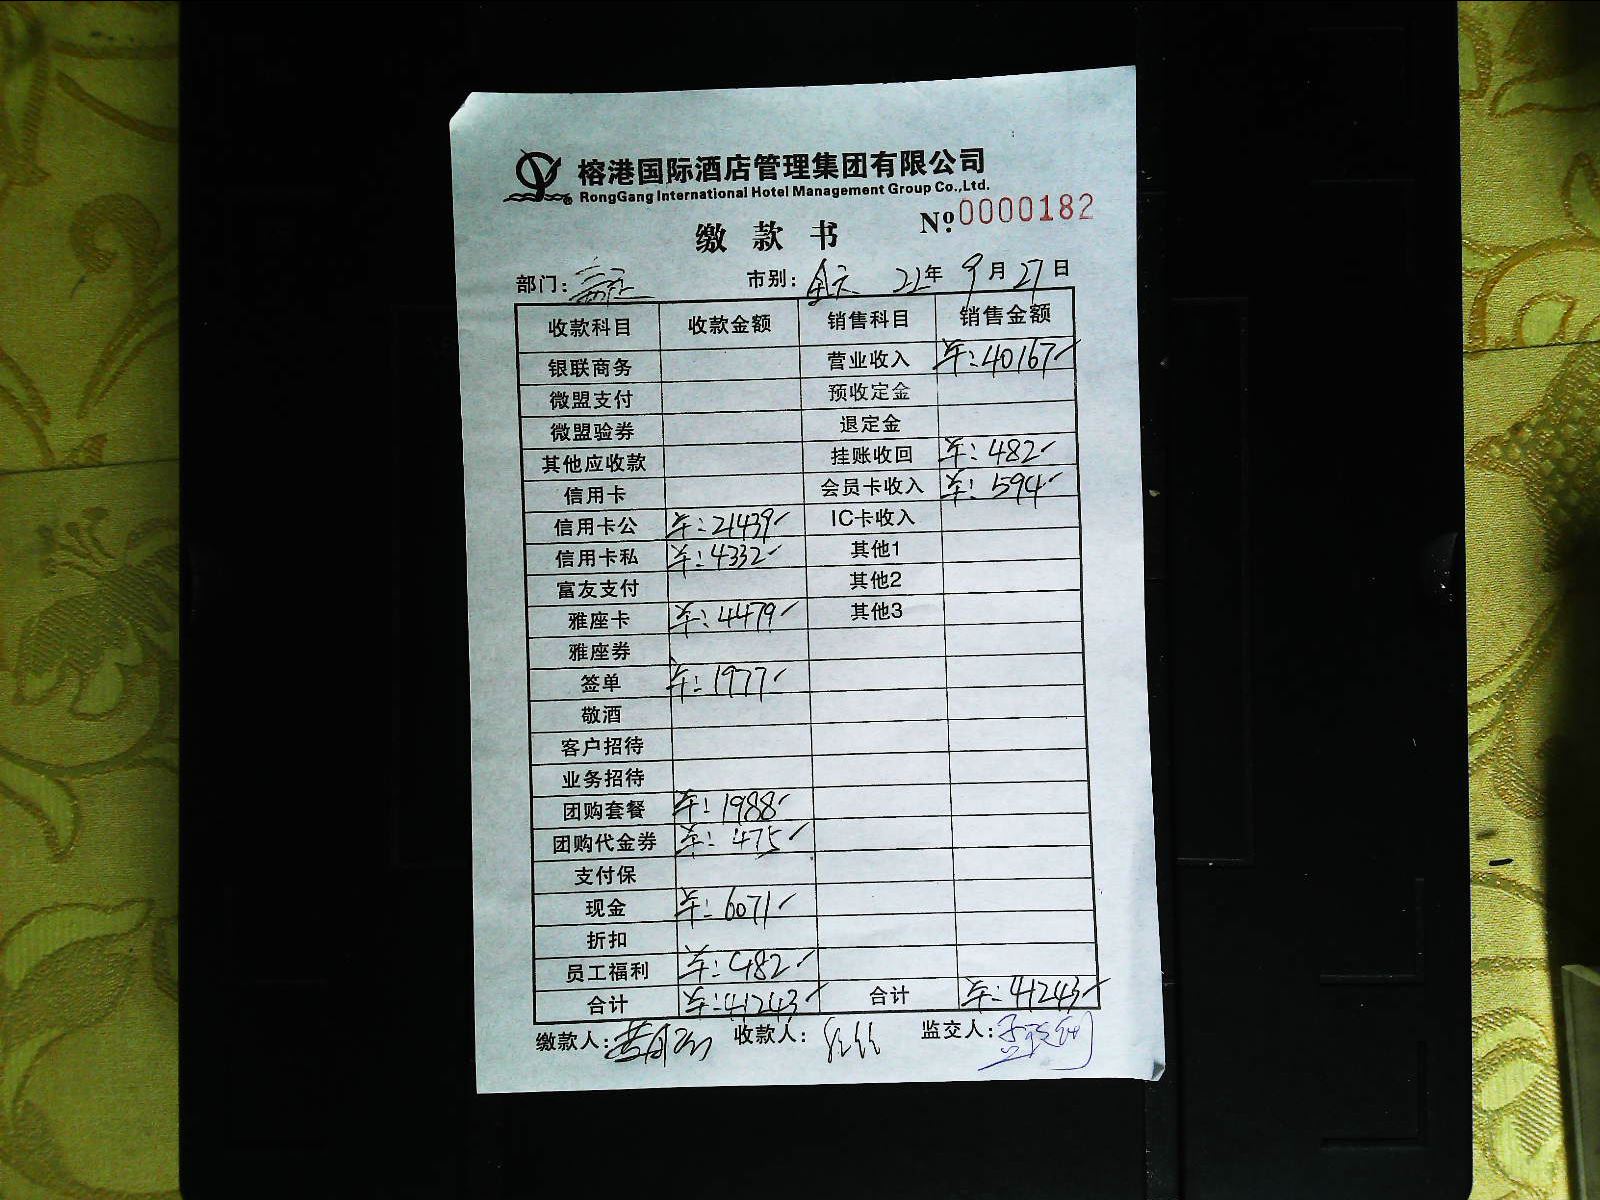 榕港国际酒店管理集团有限公司
RongGang International Hotel Management Group Co.,Ltd.
缴款书 №0000182
部门: 市别:全天 22年9月27日
收款科目 收款金额 销售科目 销售金额
银联商务 营业收入 ¥:40167
微盟支付 预收定金
微盟验券 退定金
其他应收款 挂账收回 ¥:482
信用卡 会员卡收入 ¥:594
信用卡公 ¥:21439 IC卡收入
信用卡私 ¥:4332 其他1
富友支付 其他2
雅座卡 ¥:4479 其他3
雅座券
签单 ¥:1977
敬酒
客户招待
业务招待
团购套餐 ¥:1988
团购代金券 ¥:475
支付保
现金 ¥:6071
折扣
员工福利 ¥:482
合计 ¥:41243 合计 ¥:41243
缴款人: 收款人: 监交人: